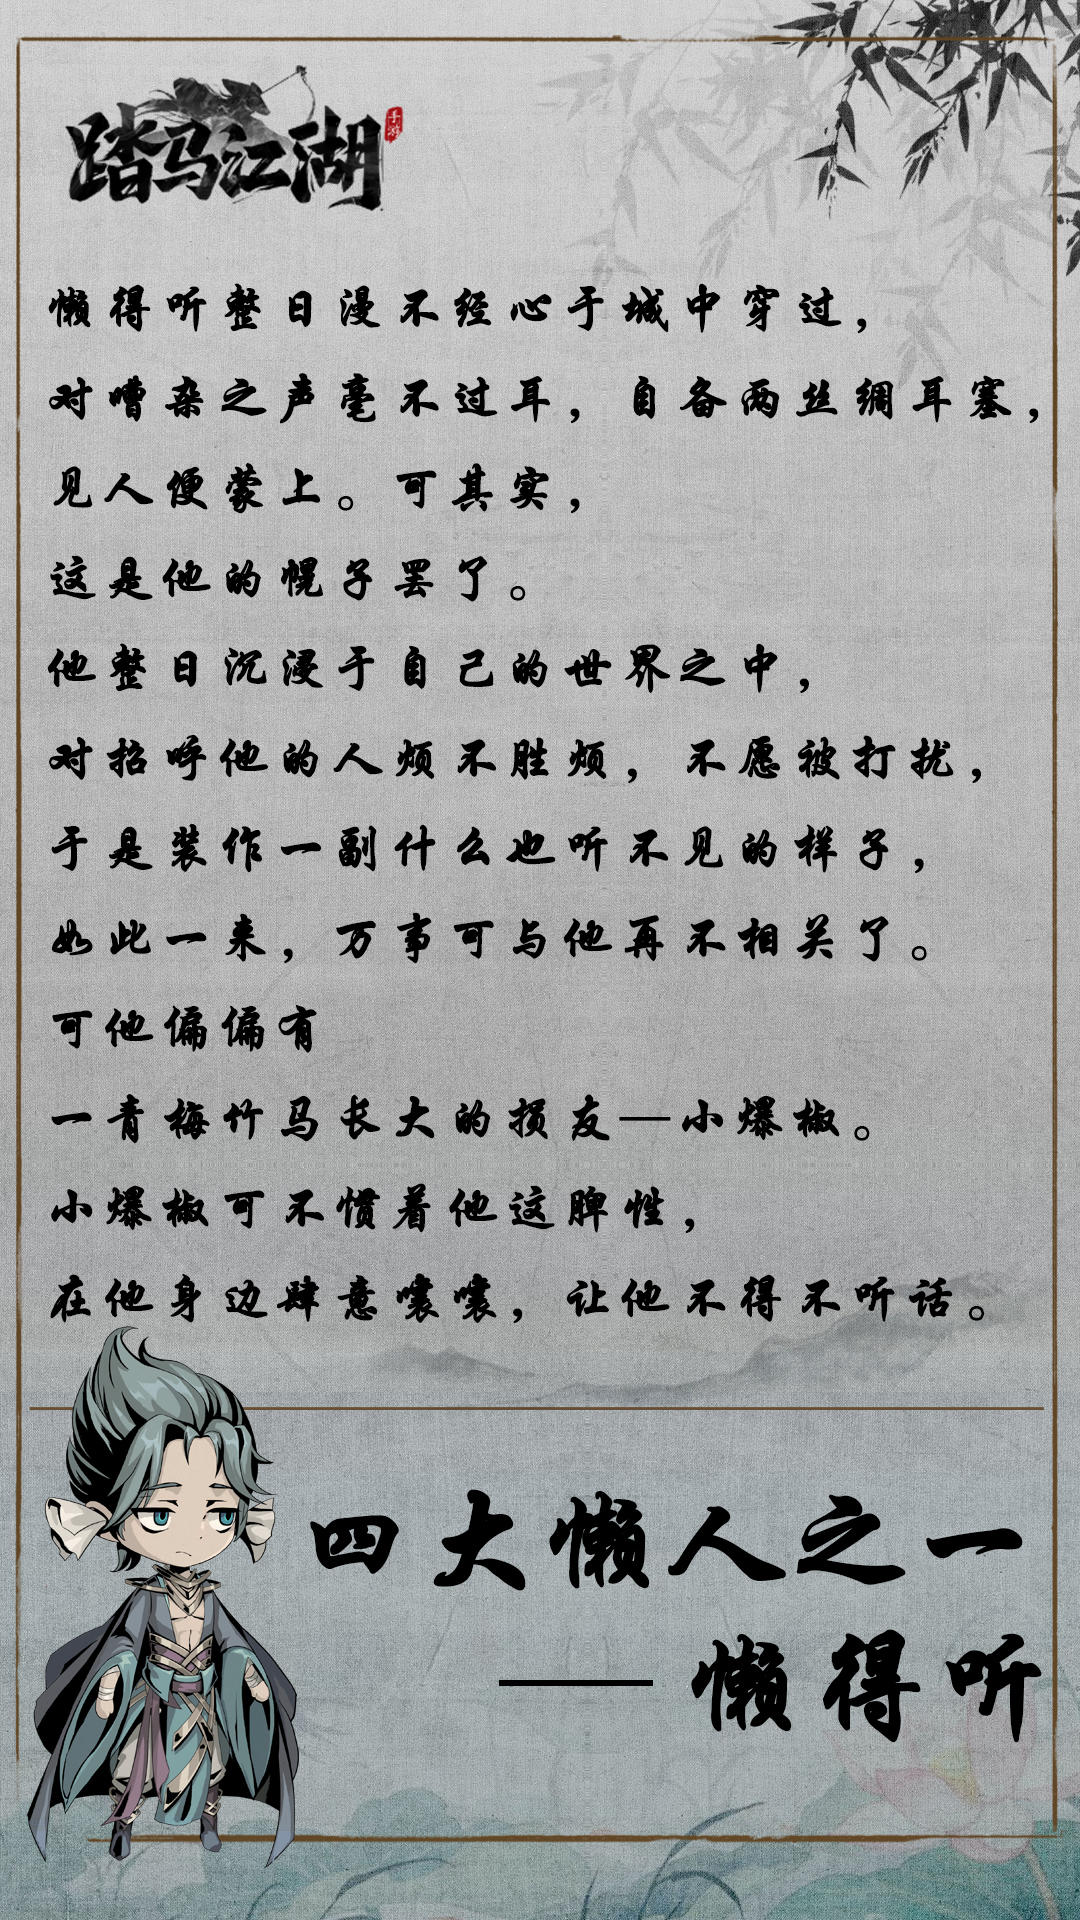 踏马江湖
手游
懒得听整日漫不经心于城中穿过，
对嘈杂之声毫不过耳，自备两丝绸耳塞，
见人便蒙上。可其实，
这是他的幌子罢了。
他整日沉浸于自己的世界之中，
对招呼他的人烦不胜烦，不愿被打扰，
于是装作一副什么也听不见的样子，
如此一来，万事可与他再不相关了。
可他偏偏有
一青梅竹马长大的损友—小爆椒。
小爆椒可不惯着他这脾性，
在他身边肆意嚷嚷，让他不得不听话。
四大懒人之一
——懒得听